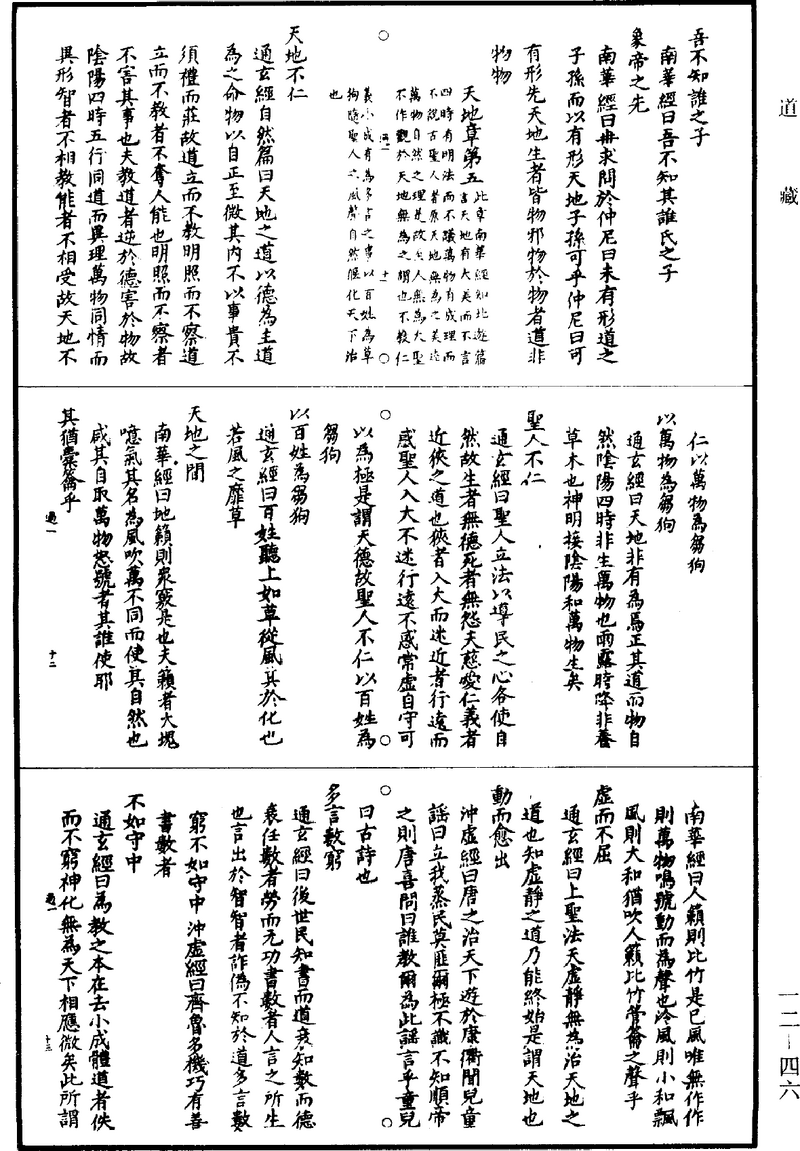 道藏
吾不知誰之子
南華經曰吾不知其誰氏之子
象帝之先
南華經曰冉求問於仲尼曰未有形道之
子孫而以有形天地子孫可乎仲尼曰可
有形先天地生者皆物邪物於物者道非
物物
天地章第五
此章南華經知北遊篇
言天地有大美而不言
四時有明法而不議萬物有成理而
不說古聖人者原天地無為之美達
萬物自然之理是故至人無為大聖
不作觀於天地無為之謂也不教仁
義小成有為多言之事以百姓為草
狗隨聖人之風聲自然偃化天下治
也
天地不仁
通玄經自然篇曰天地之道以德為主道
為之命物以自正至微其內不以事貴不
須禮而莊故道立而不教明照而不察道
立而不教者不奪人能也明照而不察者
不害其事也夫教道者逆於德害於物故
陰陽四時五行同道而異理萬物同情而
異形智者不相教能者不相受故天地不
仁以萬物為芻狗
以萬物為芻狗
通玄經曰天地非有為焉正其道而物自
然陰陽四時非生萬物也雨露時降非養
草木也神明接陰陽和萬物生矣
聖人不仁
通玄經曰聖人立法以導民之心各使自
然故生者無德死者無怨夫慈愛仁義者
近狹之道也狹者入大而迷近者行遠而
惑聖人入大不迷行遠不惑常虛自守可
以為極是謂天德故聖人不仁以百姓為
芻狗
以百姓為芻狗
通玄經曰百姓聽上如草從風其於化也
若風之靡草
天地之間
南華經曰地籟則衆竅是也夫籟者大塊
噫氣其名為風吹萬不同而使其自然也
咸其自取萬物怒號者其誰使耶
其猶橐籥乎
過一
十二
南華經曰人籟則比竹是已風唯無作作
則萬物鳴號動而為聲也冷風則小和飄
風則大和猶吹人籟比竹管籥之聲乎
虛而不屈
通玄經曰上聖法天虛靜無為治天地之
道也知虛靜之道乃能終始是謂天地也
動而愈出
沖虛經曰唐之治天下遊於康衢聞兒童
謠曰立我蒸民莫匪爾極不識不知順帝
之則唐喜問曰誰教爾為此謠言乎童兒
曰古詩也
多言數窮
通玄經曰後世民知書而道衰知數而德
衰任數者勞而无功書數者人言之所生
也言出於智智者詐偽不知於道多言數
窮不如守中沖虛經曰齊魯多機巧有善
書數者
不如守中
通玄經曰為教之本在去小成體道者佚
而不窮神化無為天下相應微矣此所謂
過一
十三
一二—四六